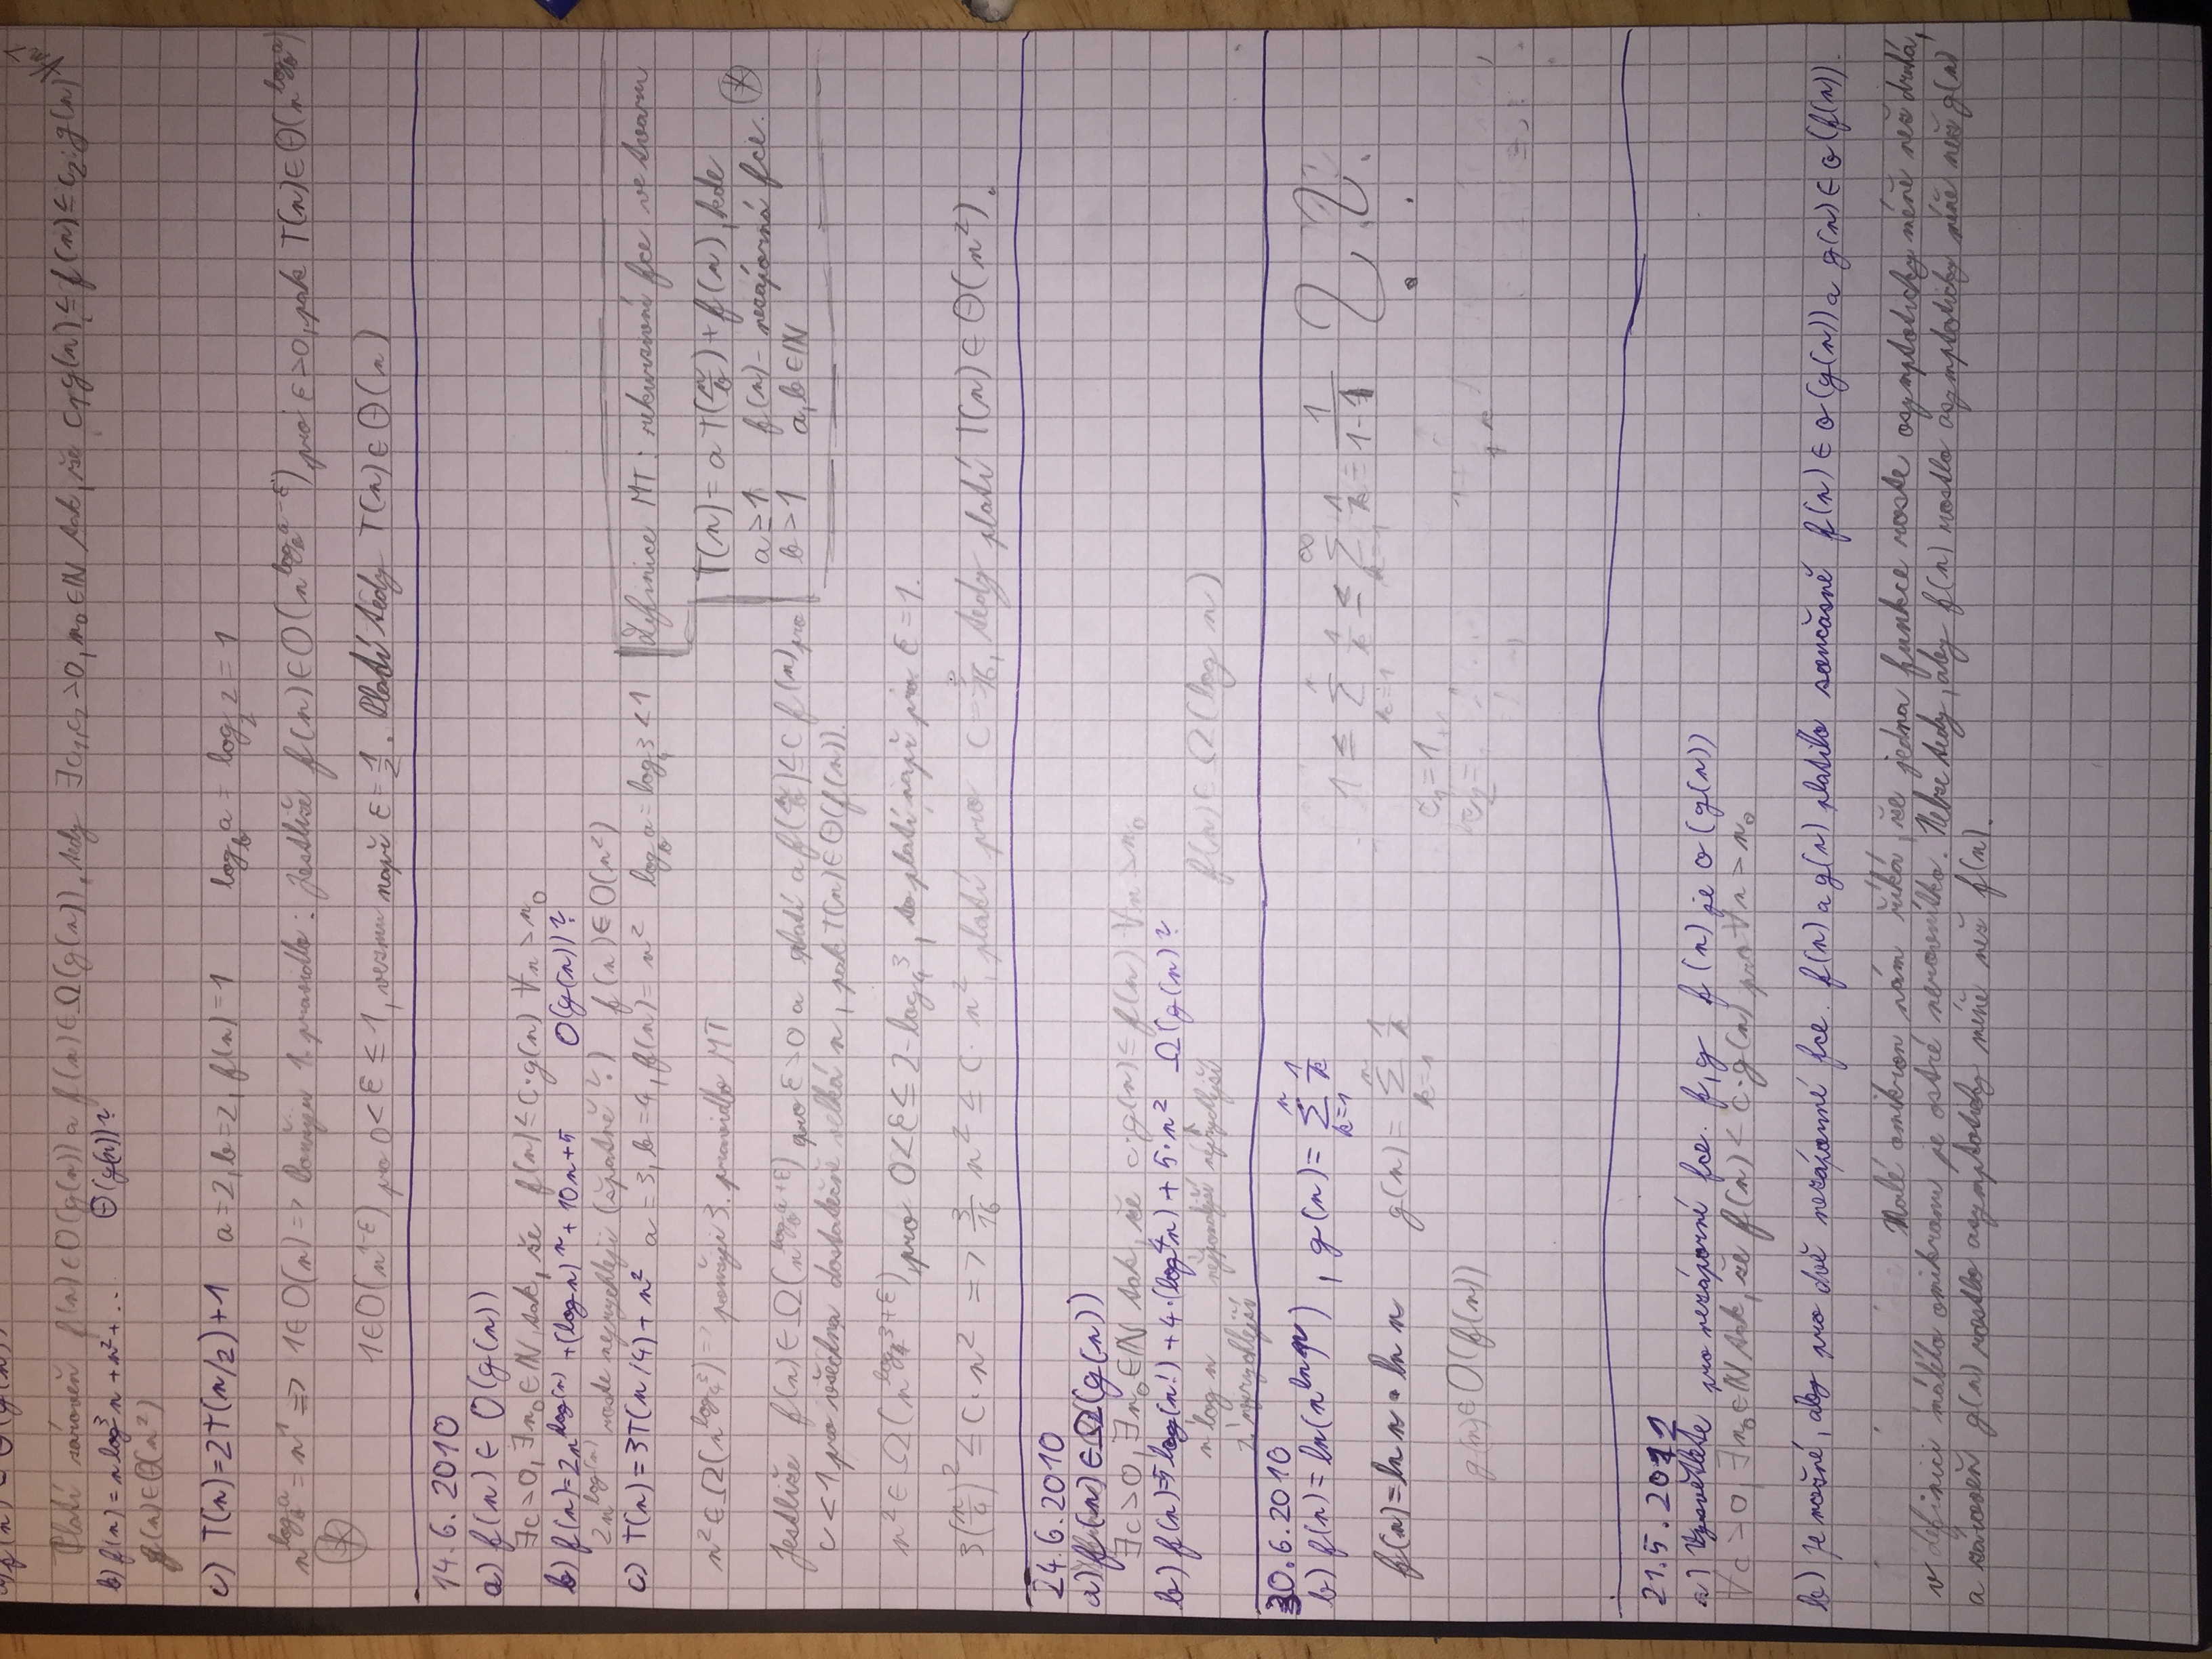 a) f(n) = Θ(g(n))
Platí zároveň f(n)∈O(g(n)) a f(n)∈Ω(g(n)), tedy ∃c₁,c₂>0, n₀∈ℕ tak, že c₁g(n)≤f(n)≤c₂·g(n) ∀n>
b) f(n)=n log³n+n²+... Θ(g(n))?
f(n)∈Θ(n²)
c) T(n)=2T(n/2)+1 a=2, b=2, f(n)=1 log_b a = log₂ 2 = 1
n^(log_b a) = n¹ => 1∈O(n) => Použiju 1. pravidlo: Jestliže f(n)∈O(n^(log_b a-ε)), pro ε>0, pak T(n)∈Θ(n^(log_b a))
1∈O(n^(1-ε)) pro 0<ε≤1, vezmu např ε=1/2. Platí tedy T(n)∈Θ(n)
14.6.2010
a) f(n) ∈ O(g(n))
∃c>0, ∃n₀∈ℕ tak, že f(n)≤c·g(n) ∀n>n₀
b) f(n)=2n^(log(n)) +(log n)^n + 10n+5 O(g(n))?
2n^(log(n)) roste nejrychleji (špatně?) f(n)∈O(n²)
c) T(n)=3T(n/4)+n² a=3, b=4, f(n)=n² log_b a=log₄3<1
Definice MT: rekurzivní fce ve tvaru
T(n)=aT(n/b)+f(n), kde
a≥1 f(n)- nezáporná fce.
b>1 a,b∈ℕ
n²∈Ω(n^(log₄3)) => použiji 3. pravidlo MT
Jestliže f(n)∈Ω(n^(log_b a+ε)) pro ε>0 a platí a f(n/b)≤c f(n) pro
c<1 pro všechna dostatečně velká n, pak T(n)∈Θ(f(n)).
n²∈Ω(n^(log₄3+ε)), pro 0<ε≤2-log₄3, to platí např pro ε=1.
3(n/4)²≤c·n² => 3/16 n²≤c·n², platí pro c=3/16, tedy platí T(n)∈Θ(n²).
24.6.2010
a) f(n)∈Ω(g(n))
∃c>0, ∃n₀∈ℕ tak, že c·g(n)≤f(n) ∀n>n₀
b) f(n)=5log(n!)+4·(log⁴n)+5·n² Ω(g(n)?
n log n nejpomalejší nejrychlejší f(n)∈Ω(log n)
2. nejrychlejší
30.6.2010
b) f(n)=ln(n^(ln n)), g(n)=∑_{k=1}^{n} 1/k
1 ≤ ∑_{k=1}^{n} 1/k ≤ ∑_{k=1}^{∞} 1/k = 1/(1-1) ? ?
f(n)=ln n · ln n g(n)=∑_{k=1}^{n} 1/k
c₁=1
c₂=
g(n)∈O(f(n))
21.5.2012
a) Vysvětlete pro nezáporné fce. f,g f(n) je o(g(n))
∀c>0, ∃n₀∈ℕ tak, že f(n)<c·g(n) pro ∀n>n₀
b) Je možné, aby pro dvě nezáporné fce. f(n) a g(n) platilo současně f(n)∈o(g(n)) a g(n)∈o(f(n)).
Malé omikron nám říká, že jedna funkce roste asymptoticky méně než druhá,
v definici málého omikronu je ostré nerovnítko. Nelze tedy, aby f(n) rostlo asymptoticky méně než g(n)
a zároveň g(n) rostlo asymptoticky méně než f(n).